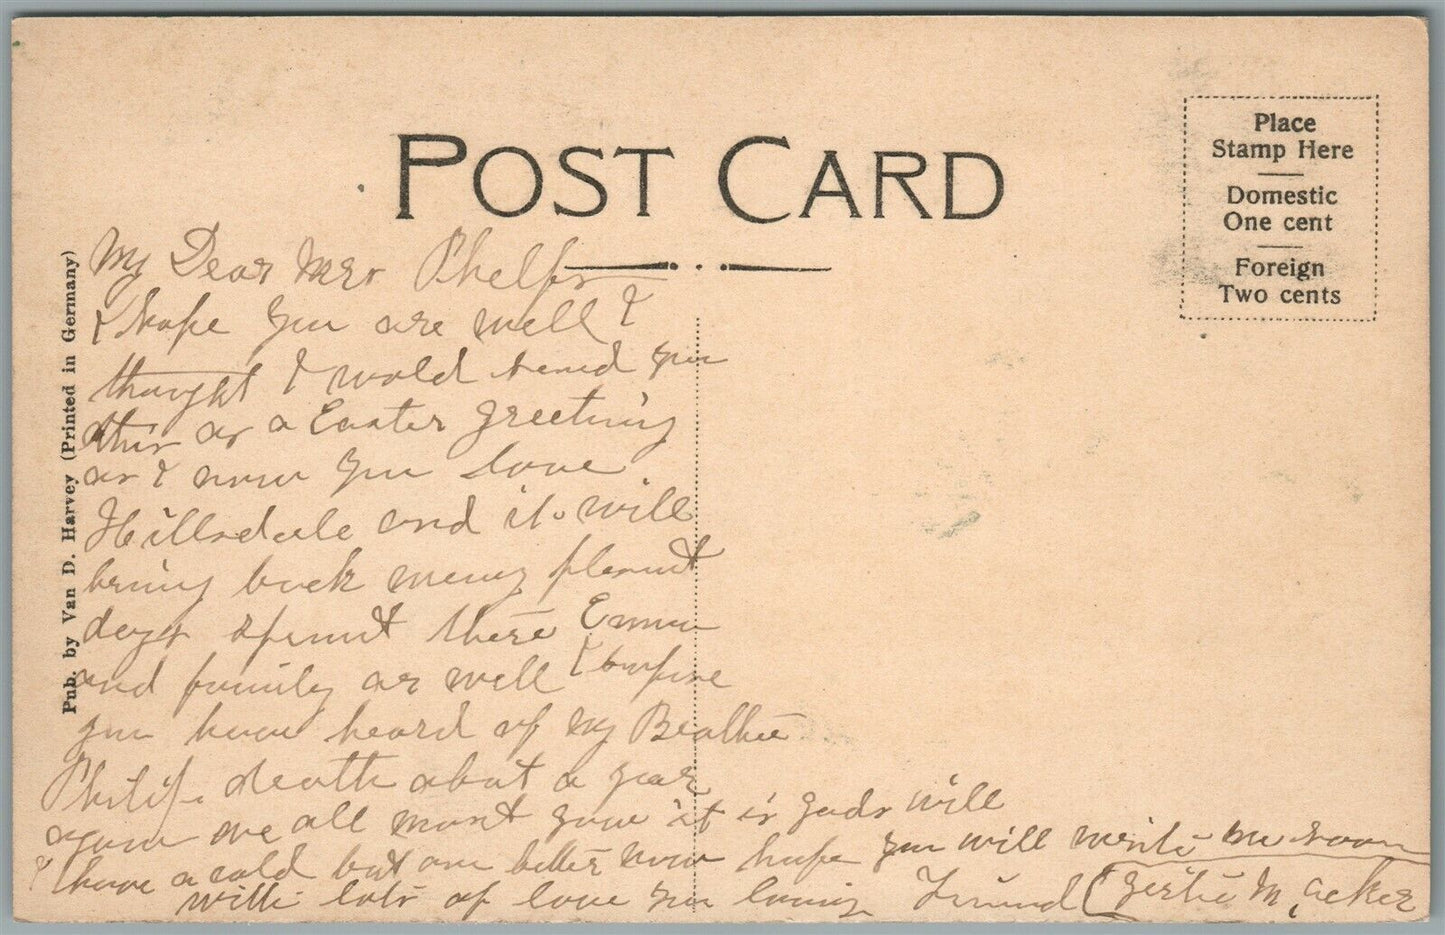 POST CARD
Place
Stamp Here
Domestic
One cent
Foreign
Two cents
Pub. by Van D. Harvey (Printed in Germany)
My Dear Mrs Phelps
I hope you are well I
thought I wold send you
this as a Easter greeting
as I now you love
Hillsdale and it will
bring back many plesant
days spent there Emma
and family ar well I
you have heard of my Beathe
Philip death about a year
agow we all must gow it is gods will
I have a cold but am better now hope you will write me soon
with lots of love your loving Friend Gertie M. Acker